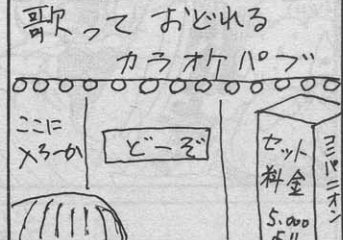 歌って おどれる
カラオケパブ
ここに
どーぞ
セット
料金
5.000
コンパニオン